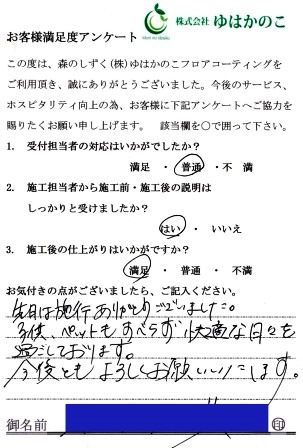 株式会社 ゆはかのこ
お客様満足度アンケート
この度は、森のしずく(株)ゆはかのこフロアコーティングを
ご利用頂き、誠にありがとうございました。今後のサービス、
ホスピタリティ向上の為、お客様に下記アンケートへご協力を
賜りたくお願い申し上げます。 該当欄を○で囲って下さい。
1. 受付担当者の対応はいかがでしたか?
満足 ・ 普通 ・ 不満
2. 施工担当者から施工前・施工後の説明は
しっかりと受けましたか?
はい ・ いいえ
3. 施工後の仕上がりはいかがですか?
満足 ・ 普通 ・ 不満
お気付きの点がございましたら、ご記入ください。
先日は施行ありがとうございました。
子供、ペットもすべらず快適な日々を
過ごしております。
今後ともよろしくお願いいたします。
御名前 印